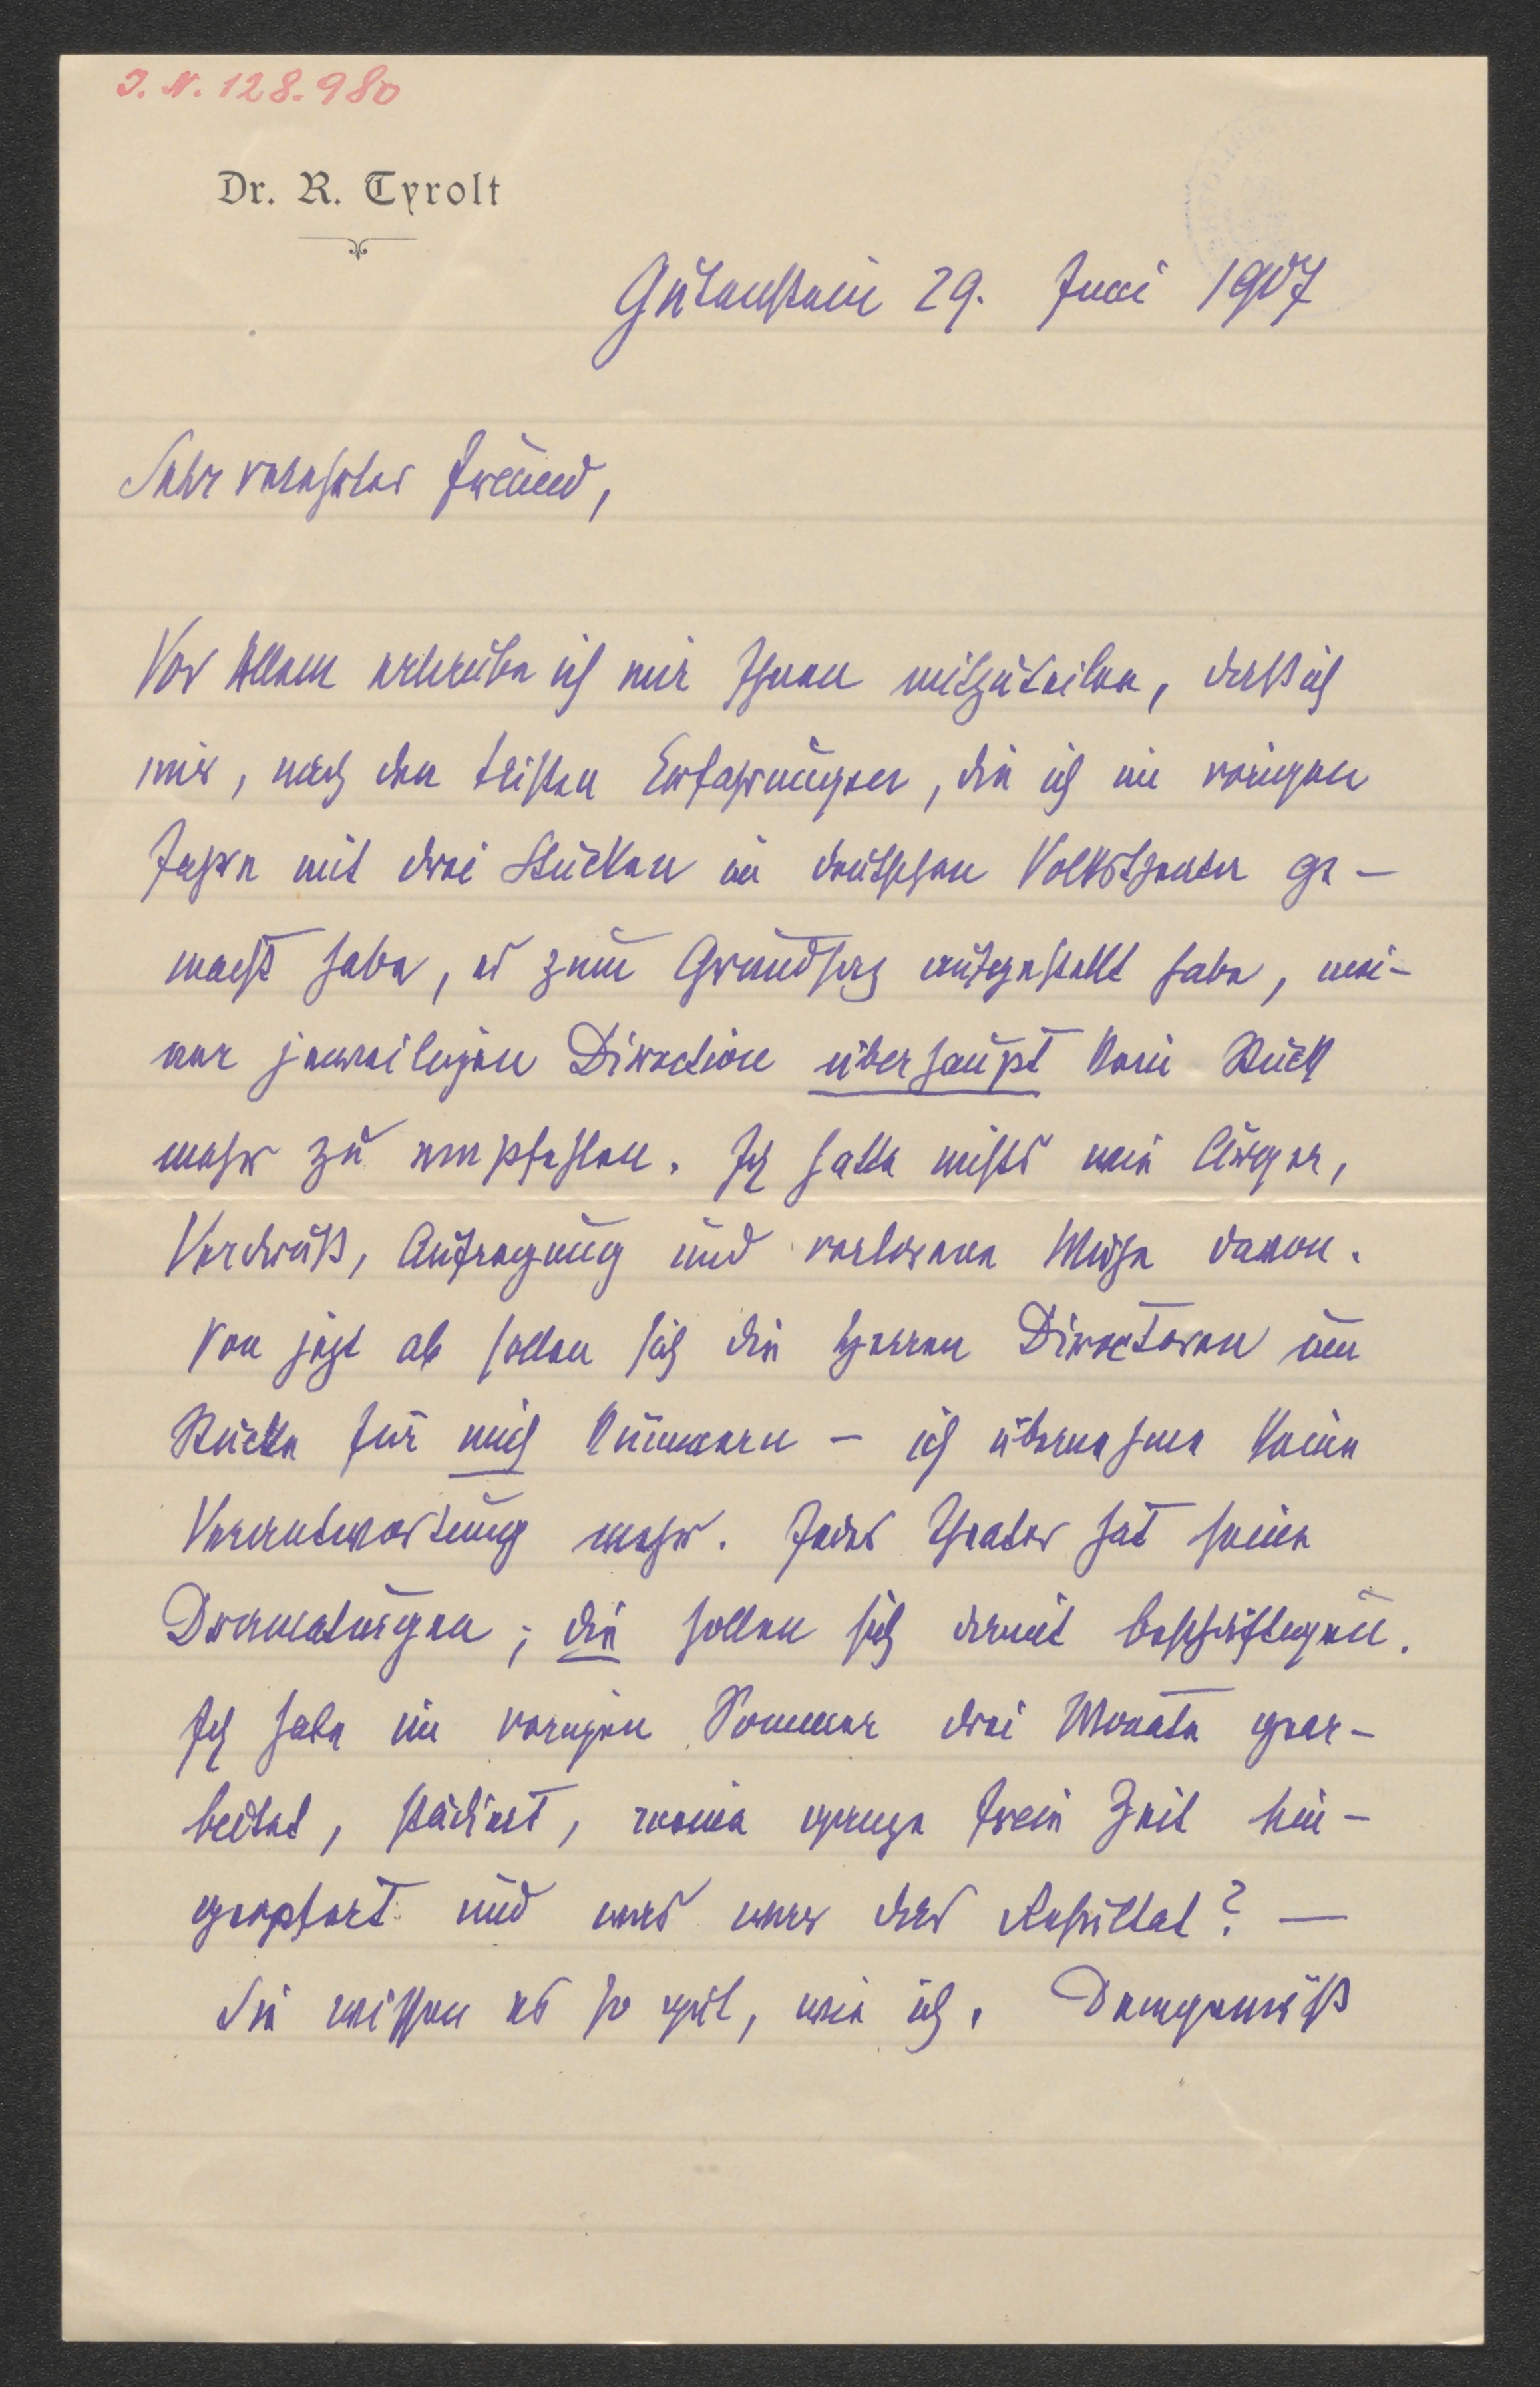 J. N. 128.980
Dr. R. Tyrolt
Gutenstein 29. Juni 1907
Sehr verehrter Freund,
Vor Allem erlaube ich mir Ihnen mitzuteilen, daß ich
mir, nach den tristen Erfahrungen, die ich im vorigen
Jahre mit drei Stücken im deutschen Volkstheater ge-
macht habe, es zum Grundsatz aufgestellt habe, mei-
ner jeweiligen Direction überhaupt kein Stück
mehr zu empfehlen. Ich hatte nichts wie Ärger,
Verdruß, Aufregung und verlorene Mühe davon.
Von jetzt ab sollen sich die Herren Directoren um
Stücke für mich kümmern – ich übernehme keine
Verantwortung mehr. Jedes Theater hat seine
Dramaturgen; die sollen sich damit beschäftigen.
Ich habe im vorigen Sommer drei Monate gear-
beitet, studiert, meine ganze freie Zeit hin-
geopfert und was war das Resultat? –
Sie wissen es so gut, wie ich. Demgemäß